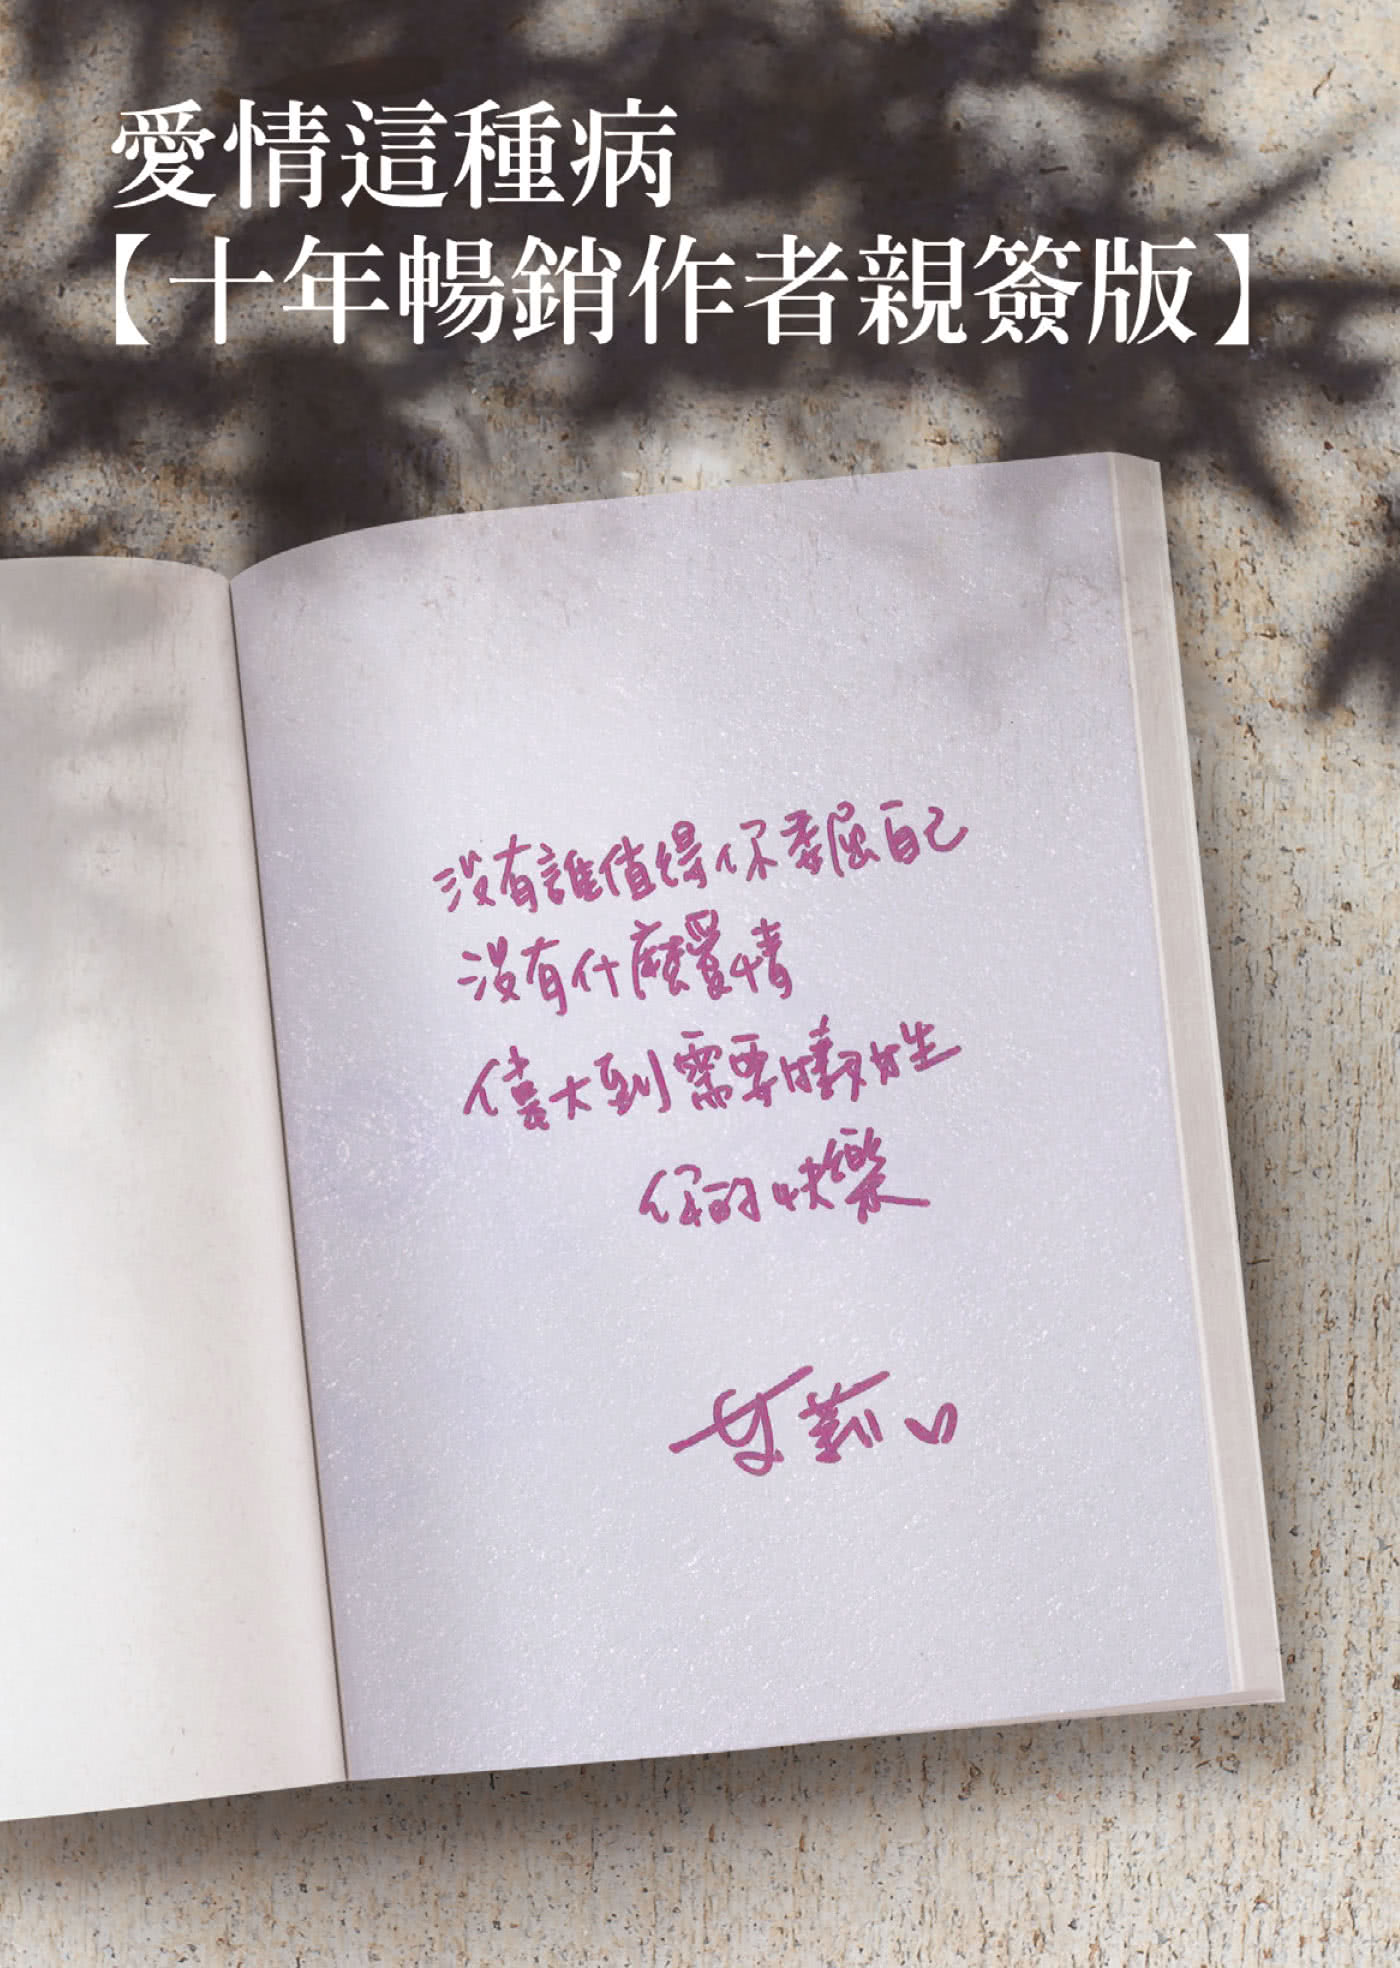 愛情這種病
【十年暢銷作者親簽版】
没有誰值得你委屈自己
没有什麼愛情
偉大到需要犧牲
你的快樂
艾莉